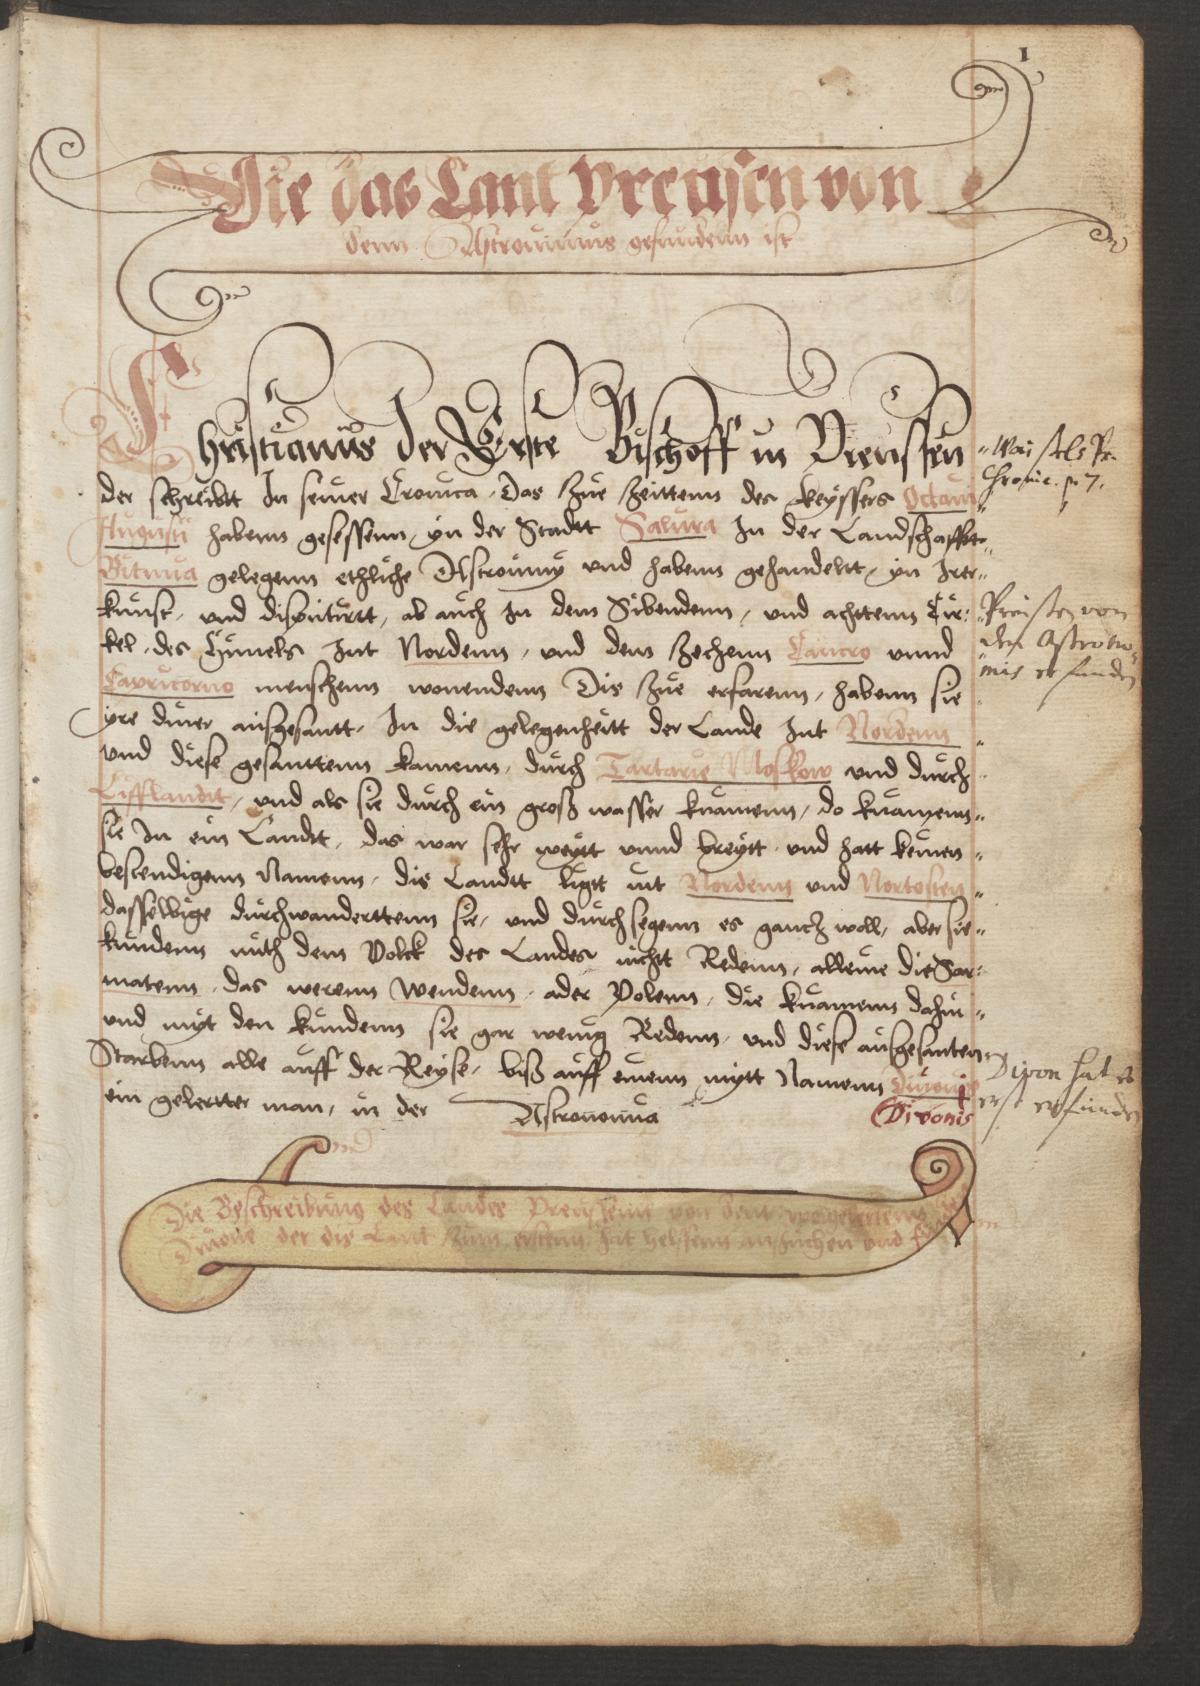 1
Wie das Lant Preussen von
denn Astronimus gefundenn ist
Christianus der Erste Bischoff in Preussen
der schreibtt In seiner Cronica, Das zue Zeittenn des keyssers Octavi
Augusti habenn gesessenn, yn der Stadtt Salura In der Landschafftt
Bitinia gelegenn ethliche Astronimy und habenn gehandeltt, yn Irer
kunst, und disputirtt, ab auch In dem Sibendenn, und achttenn Cir:
kel, des Himels Int Nordenn, und dem Zechenn Cancro unnd
Capricorno menschenn wonendenn Dis zue erfarenn, habenn sie
yre diner aussgesantt, In die gelegenheitt der Lande Int Nordenn
und diese gesanttenn kamenn, durch Tartarie Moskow und durch
Lifflandtt, und als sie durch ein groß wasser kwamenn, do kwamenn
sie In ein Landtt, das war sehr weytt unnd breytt, und hatt keinen
bestendigenn Namenn, dis Landtt ligtt int Nordenn und Nortosten
dasselbige durchwanderttenn sie, und durchsegenn es gancz woll, aber sie
kundenn mith dem Volck des Landes nichtt Redenn, alleine die Sar:
matenn, das werenn Wendenn, ader Polenn, die kwamenn dahin
und myt den kundenn sie gar wenig Redenn, und diese aussgesanten
Starbenn alle auff der Reyse, biß auff einenn mytt Namenn Diwonis
ein gelertter man, in der Astronomia
Divonis
Waissels Pr.
Chronic. p. 7.
Preussen von
den Astrono
mis erfunden
Divon hat es
erst erfunden
Die Beschreibung des Landes Preussenn von dem
Diwone der dis Lant zum erstenn hat helffenn ansuchen und